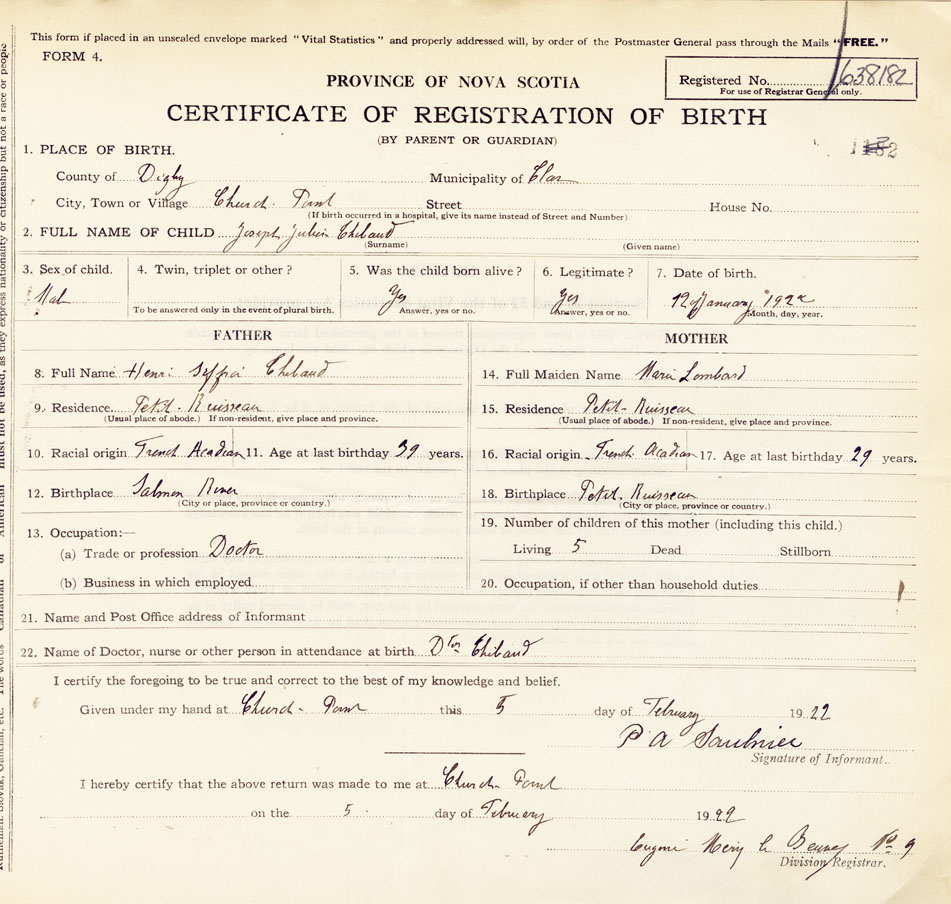 This form if placed in an unsealed envelope marked "Vital Statistics" and properly addressed will, by order of the Postmaster General pass through the Mails "FREE."
FORM 4.
PROVINCE OF NOVA SCOTIA
Registered No. 638182
For use of Registrar General only.
CERTIFICATE OF REGISTRATION OF BIRTH
(BY PARENT OR GUARDIAN)
1. PLACE OF BIRTH.
County of Digby Municipality of Clare
City, Town or Village Church Point Street House No.
(If birth occurred in a hospital, give its name instead of Street and Number)
2. FULL NAME OF CHILD Joseph Julien Thibaud
(Surname) (Given name)
3. Sex of child. 4. Twin, triplet or other? 5. Was the child born alive? 6. Legitimate? 7. Date of birth.
Male Yes Yes 12 of January 1922
To be answered only in the event of plural birth. Answer, yes or no. Answer, yes or no. Month, day, year.
FATHER MOTHER
8. Full Name Henri Thibaud 14. Full Maiden Name Marie Lombard
9. Residence. Petit-Ruisseau 15. Residence Petit-Ruisseau
(Usual place of abode.) If non-resident, give place and province. (Usual place of abode.) If non-resident, give place and province.
10. Racial origin French Acadian 11. Age at last birthday 39 years. 16. Racial origin French Acadian 17. Age at last birthday 29 years.
12. Birthplace Salmon River 18. Birthplace Petit-Ruisseau
(City or place, province or country.) (City or place, province or country.)
13. Occupation:— 19. Number of children of this mother (including this child.)
(a) Trade or profession Doctor Living 5 Dead Stillborn
(b) Business in which employed 20. Occupation, if other than household duties
21. Name and Post Office address of Informant
22. Name of Doctor, nurse or other person in attendance at birth Dtor Thibaud
I certify the foregoing to be true and correct to the best of my knowledge and belief.
Given under my hand at Church-Point this 5 day of February 1922
P A Saulnier
Signature of Informant.
I hereby certify that the above return was made to me at Church Point
on the 5 day of February 1922
No 9
Division Registrar.